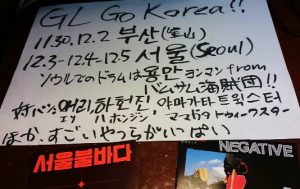 GL Go Korea!!
11.30, 12.2 부산(釜山)
12.3-12.4-12.5 서울(Seoul)
ソウルでのドラムは용만 ヨンマン from
バムサム海賊団!!
対バン 애리, 하헌진, 야마가타 트윅스터
エリ ハホンジン ヤマガタトゥイークスター
ほか、すごいやつらがいっぱい
서울불바다
NEGATIVE